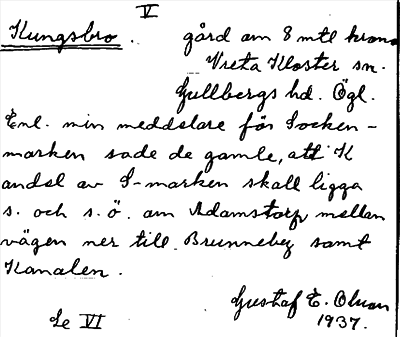 V
Kungsbro. gård om 8 mtl krono
Vreta Kloster sn.
Gullbergs hd. Ögl.
Enl. min meddelare för Socken-
marken sade de gamle, att K
andel av S-marken skall ligga
s. och s.ö. om Adamstorp, mellan
vägen ner till Brunneby samt
Kanalen.
Gustaf E. Olsson
1937.
Se VI